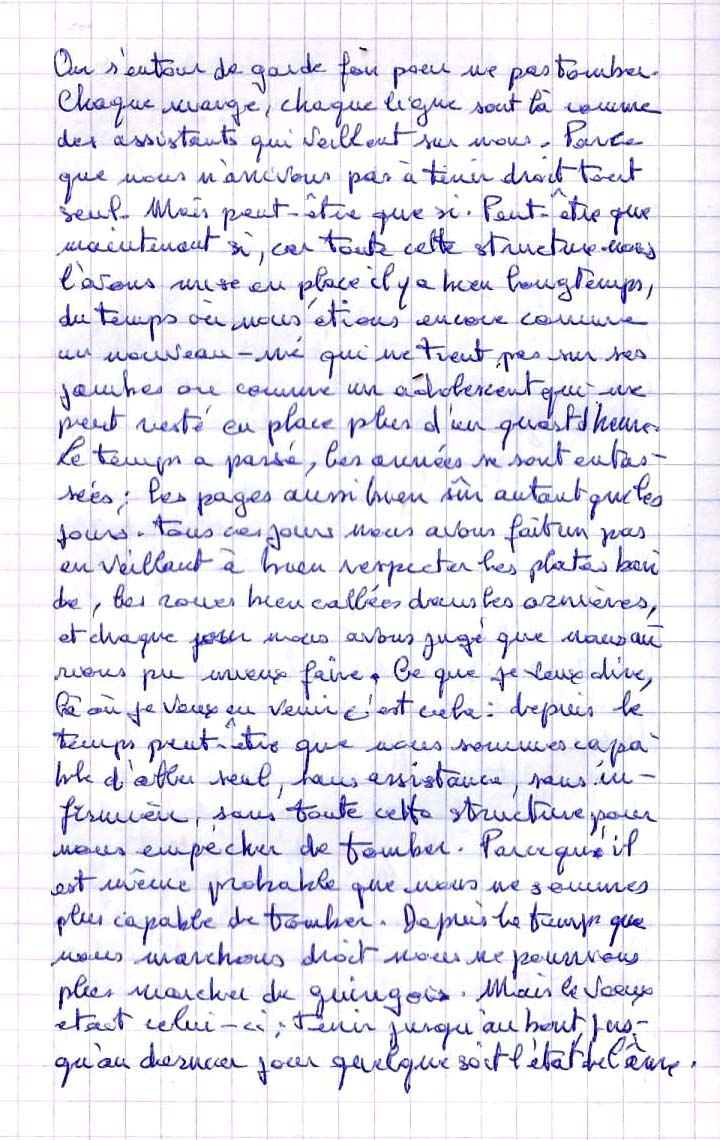 On s'entour de garde fou pour ne pas tomber.
Chaque marge, chaque ligne sont là comme
des assistants qui veillent sur nous. Parce
que nous n'arrivons pas à tenir droit tout
seul. Mais peut-être que si. Peut-être que
maintenant si, car toute cette structure nous
l'avons mise en place il y a bien longtemps,
du temps où nous étions encore comme
un nouveau-né qui ne tient pas sur ses
jambes ou comme un adolescent qui ne
peut resté en place plus d'un quart d'heure.
Le temps a passé, les années se sont entas-
sées ; les pages aussi bien sûr autant que les
jours. Tous ces jours nous avons fait un pas
en veillant à bien respecter les plates ban
de, les roues bien callées dans les ornières,
et chaque jour nous avons jugé que nous au
rions pu mieux faire. Ce que je veux dire,
là où je veux en venir c'est cela : depuis le
temps peut-être que nous sommes capa
ble d'aller seul, sans assistance, sans in-
firmière, sans toute cette structure pour
nous empêcher de tomber. Parce qu'il
est même probable que nous ne sommes
plus capable de tomber. Depuis le temps que
nous marchons droit nous ne pourrions
plus marcher de guingois. Mais le vœux
était celui-ci ; tenir jusqu'au bout, jus-
qu'au dernier jour quelque soit l'état de l'âme.